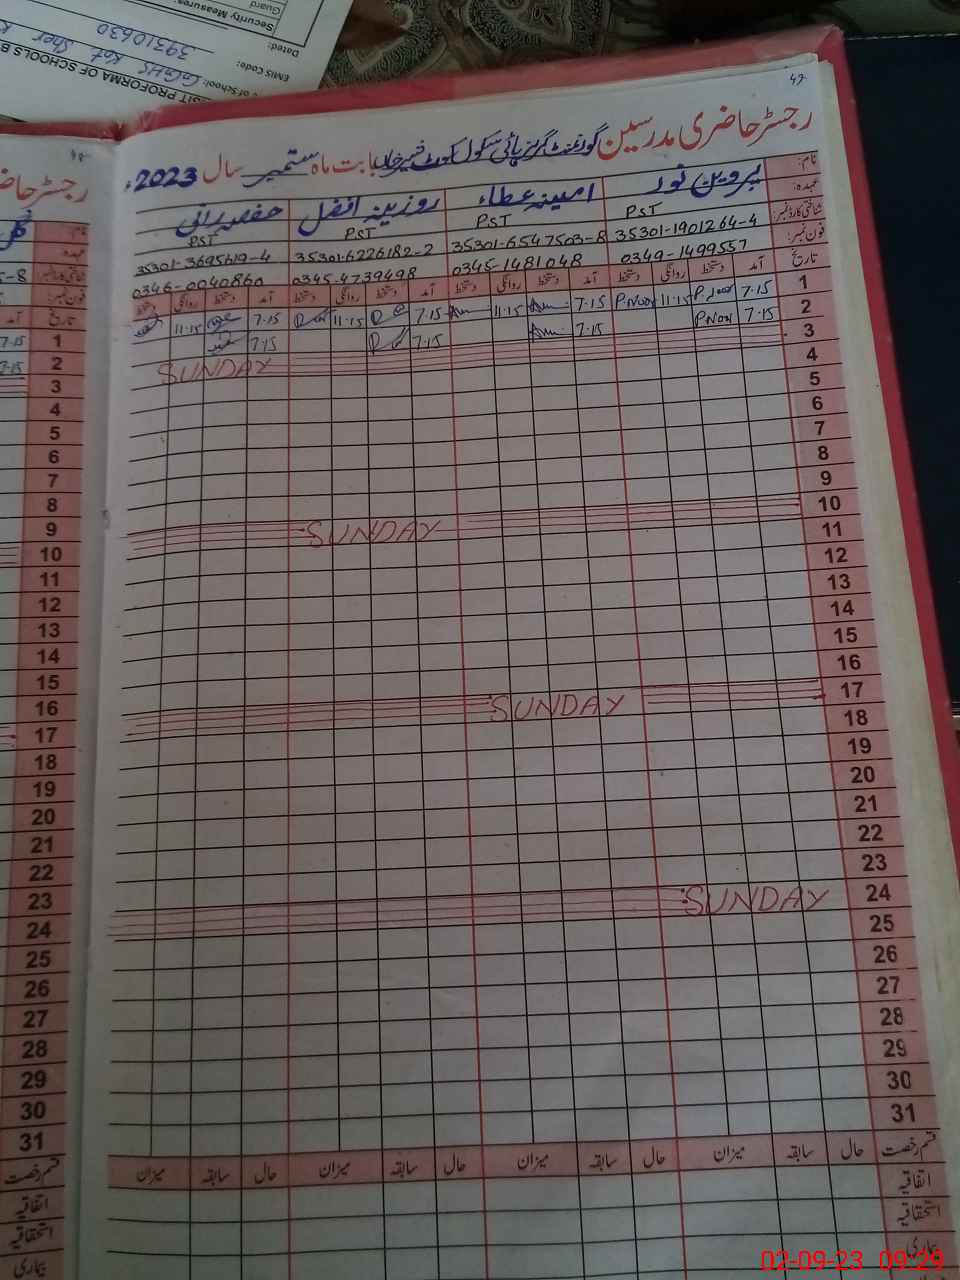 Guard
Security Measures:
Dated:
39310630
EMIS Code:
of School: GGHS Kot Sher K
SIT PROFORMA OF SCHOOLS B
42
رجسٹر حاضری مدرسین گورنمنٹ گرلز ہائی سکول کوٹ شیر خان بابت ماہ ستمبر سال 2023ء
نام: پروین نور امینہ عطاء روزینہ افضل
عہدہ: PST PST PST PST
شناختی کارڈ نمبر: 35301-1901264-4 35301-6547503-8 35301-6226182-2 35301-3695619-4
فون نمبر: 0349-1499557 0345-1481048 0345-4739498 0346-0040860
تاریخ آمد دستخط روانگی دستخط آمد دستخط روانگی دستخط آمد دستخط روانگی دستخط آمد دستخط روانگی دستخط
1 7.15 P.Noor 11.15 P.Noor 7.15 Am 11.15 Am 7.15 11.15 7.15 11.15
2 7.15 P.Noor 7.15 Am 7.15 7.15
3 SUNDAY
4
5
6
7
8
9
10 SUNDAY
11
12
13
14
15
16
17 SUNDAY
18
19
20
21
22
23
24 SUNDAY
25
26
27
28
29
30
31
قسم رخصت حال سابقہ میزان حال سابقہ میزان حال سابقہ میزان حال سابقہ میزان
اتفاقیہ
استحقاقیہ
بیماری
رجسٹر حاض
نام:
عہدہ:
شناختی کارڈ نمبر: 5-8
فون نمبر:
تاریخ
1 7.15
2 7.15
3
4
5
6
7
8
9
10
11
12
13
14
15
16
17
18
19
20
21
22
23
24
25
26
27
28
29
30
31
قسم رخصت
اتفاقیہ
استحقاقیہ
بیماری
02-09-23 09:29